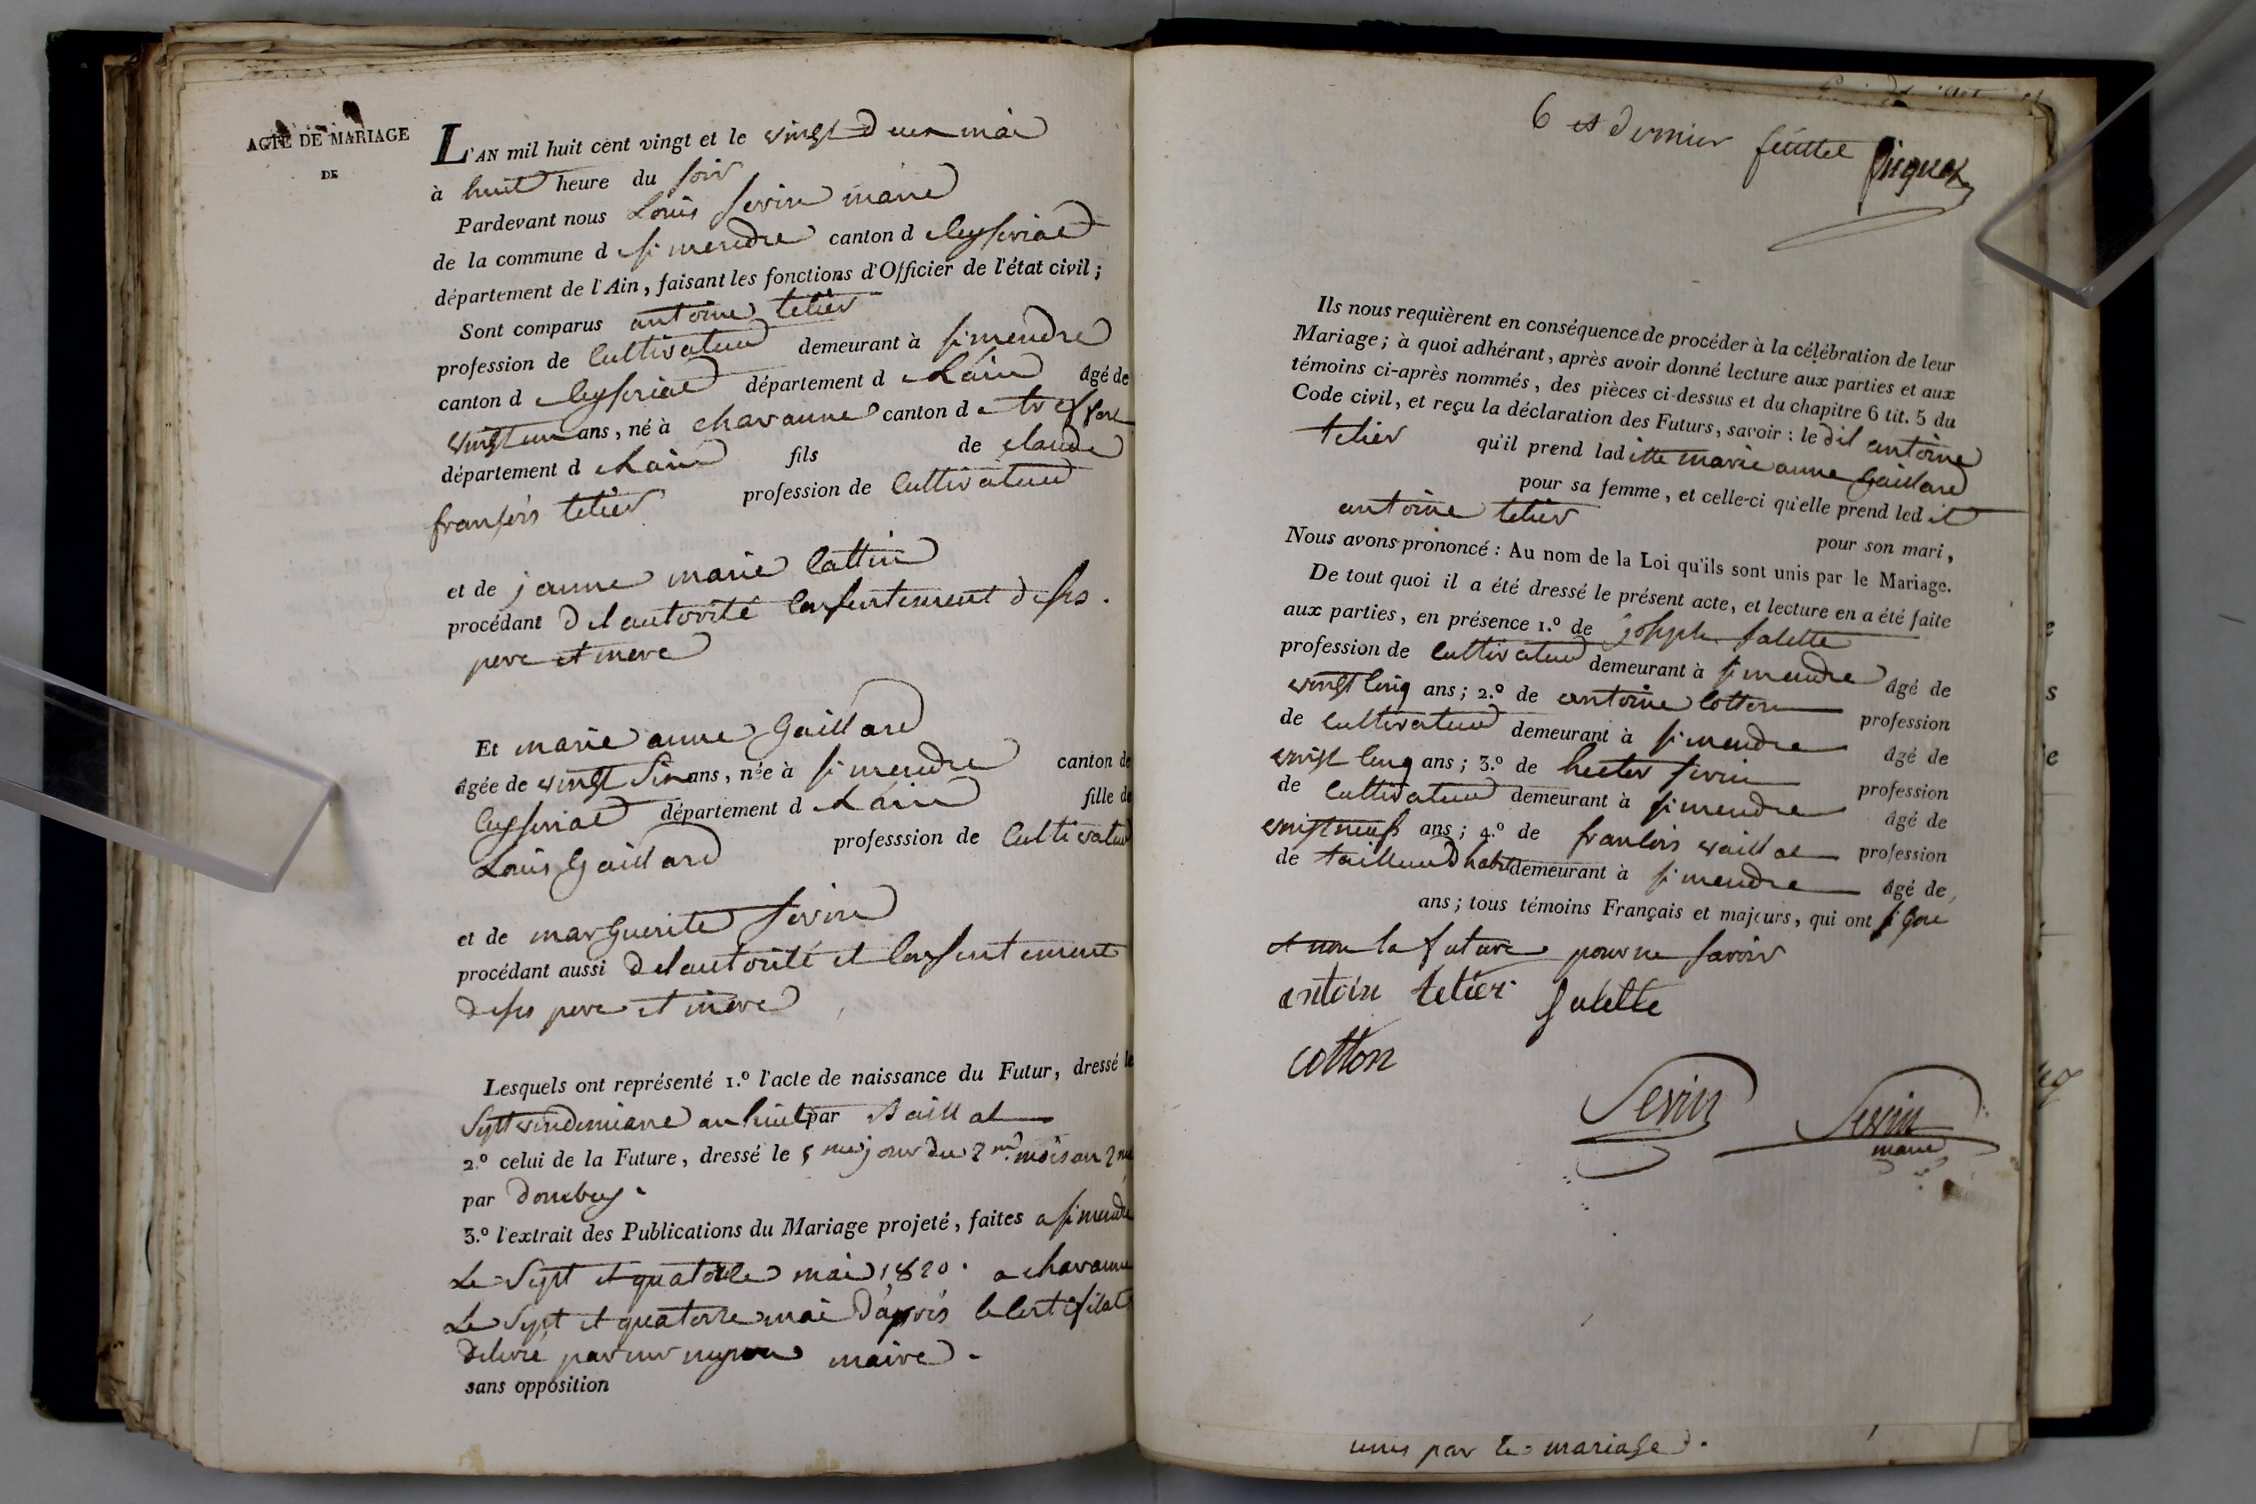 ACTE DE MARIAGE
DE
L'AN mil huit cent vingt et le vingt deux mai
à huit heure du soir
Pardevant nous Louis sevin maire
de la commune d e st mendre canton d e Ceyseriat
département de l'Ain, faisant les fonctions d'Officier de l'état civil;
Sont comparus antoine tetier
profession de Cultivateur demeurant à simendre
canton d e Ceyseriat département d e Lain âgé de
vingt un ans, né à chavanne canton d e treffort
département d e Lain fils de claude
fransois tetier profession de Cultivateur
et de jeanne marie Cottin
procédant del autorité Consentement de ses
pere et mere
Et marie anne Gaillard
âgée de vingt Six ans, née à simendre canton de
Ceyseriat département d e Lain fille de
Louis Gaillard professsion de Cultivateur
et de marguerite sevin
procédant aussi del autorité et Consentement
de ses pere et mere
Lesquels ont représenté 1.º l'acte de naissance du Futur, dressé le
Sept vendemiaire an huit par Vaillat
2.º celui de la Future, dressé le 5 me jour du 2 me mois an 2 me
par Dombey
3.º l'extrait des Publications du Mariage projeté, faites a simendre
Le Sept et quatorze mai 1820. a chavanne
Le Sept et quatorze mai d'après le Certificat
delivré par mr maire
sans opposition
6 et dernier feuillet
Picquet
Ils nous requièrent en conséquence de procéder à la célébration de leur
Mariage; à quoi adhérant, après avoir donné lecture aux parties et aux
témoins ci-après nommés, des pièces ci-dessus et du chapitre 6 tit. 5 du
Code civil, et reçu la déclaration des Futurs, savoir: le dit antoine
tetier qu'il prend lad itte marie anne Gaillard
pour sa femme, et celle-ci qu'elle prend led it
antoine tetier pour son mari,
Nous avons prononcé: Au nom de la Loi qu'ils sont unis par le Mariage.
De tout quoi il a été dressé le présent acte, et lecture en a été faite
aux parties, en présence 1.º de joseph salette
profession de Cultivateur demeurant à simendre âgé de
vingt Cinq ans; 2.º de antoine Cotton profession
de Cultivateur demeurant à simendre âgé de
vingt Cinq ans; 3.º de hector sevin profession
de Cultivateur demeurant à simendre âgé de
vingt neuf ans; 4.º de francois vaillat profession
de tailleur d habit demeurant à simendre âgé de
ans; tous témoins Français et majeurs, qui ont signé
et non la future pour ne savoir
antoin tetier Salette
cotton
Sevin Sevin
maire
unis par le mariage.